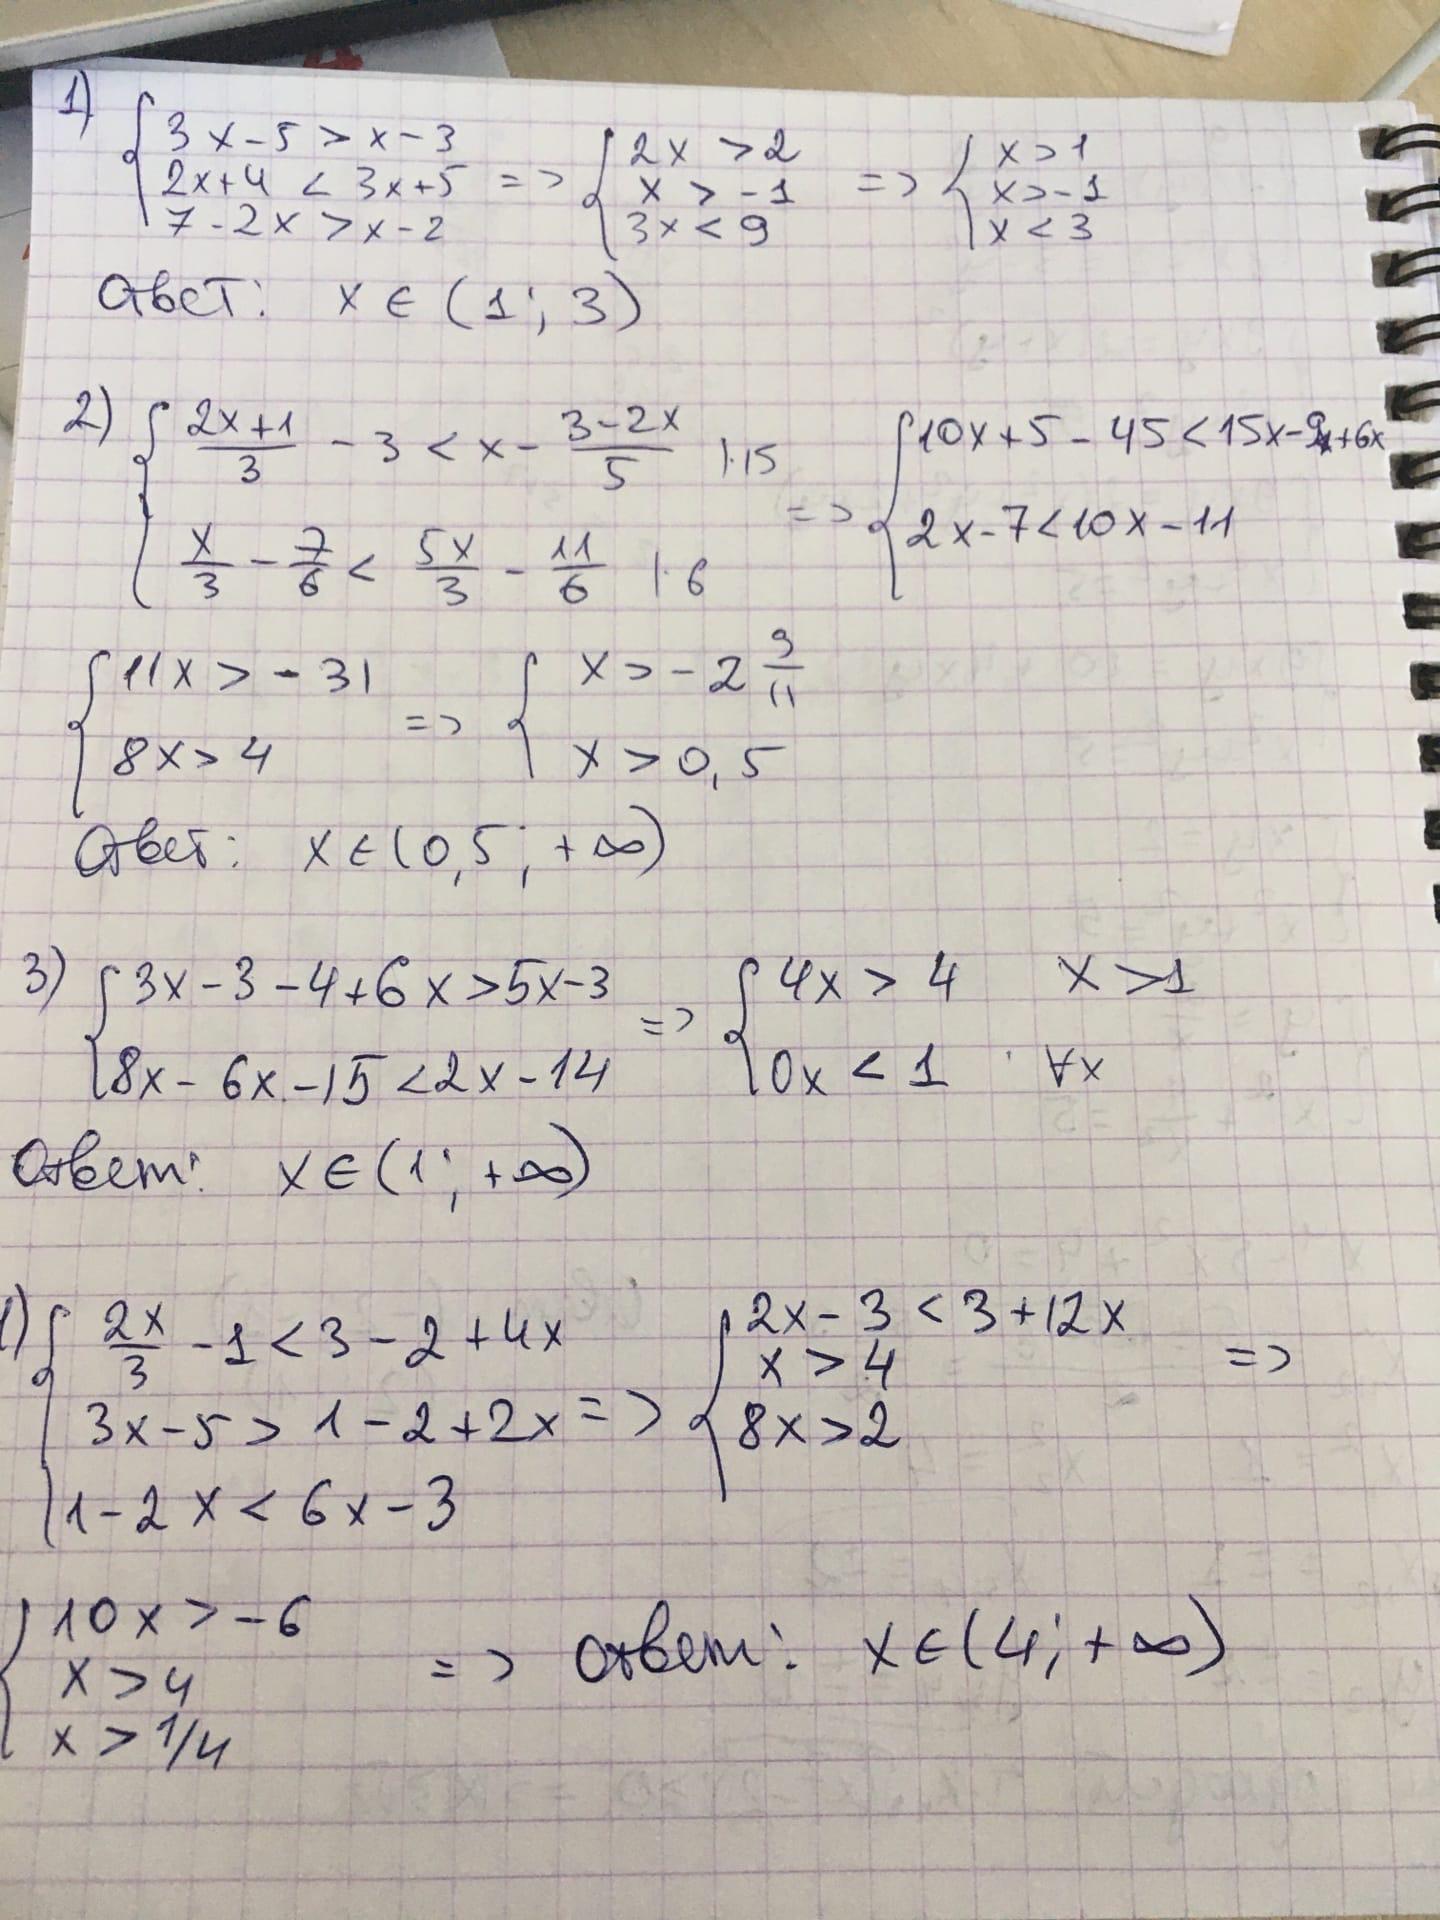 1) { 3x-5 > x-3
2x+4 < 3x+5
7-2x > x-2 => { 2x > 2
x > -1
3x < 9 => { x > 1
x > -1
x < 3
Ответ: x ∈ (1; 3)
2) { (2x+1)/3 - 3 < x - (3-2x)/5 |·15
x/3 - 7/6 < 5x/3 - 11/6 |·6 => { 10x+5-45 < 15x-9+6x
2x-7 < 10x-11
{ 11x > -31
8x > 4 => { x > -2 9/11
x > 0,5
Ответ: x ∈ (0,5; +∞)
3) { 3x-3-4+6x > 5x-3
8x-6x-15 < 2x-14 => { 4x > 4 x > 1
0x < 1 ∀x
Ответ: x ∈ (1; +∞)
{ 2x/3 - 1 < 3-2+4x
3x-5 > 1-2+2x
1-2x < 6x-3 => { 2x-3 < 3+12x
x > 4
8x > 2 =>
{ 10x > -6
x > 4
x > 1/4 => Ответ: x ∈ (4; +∞)